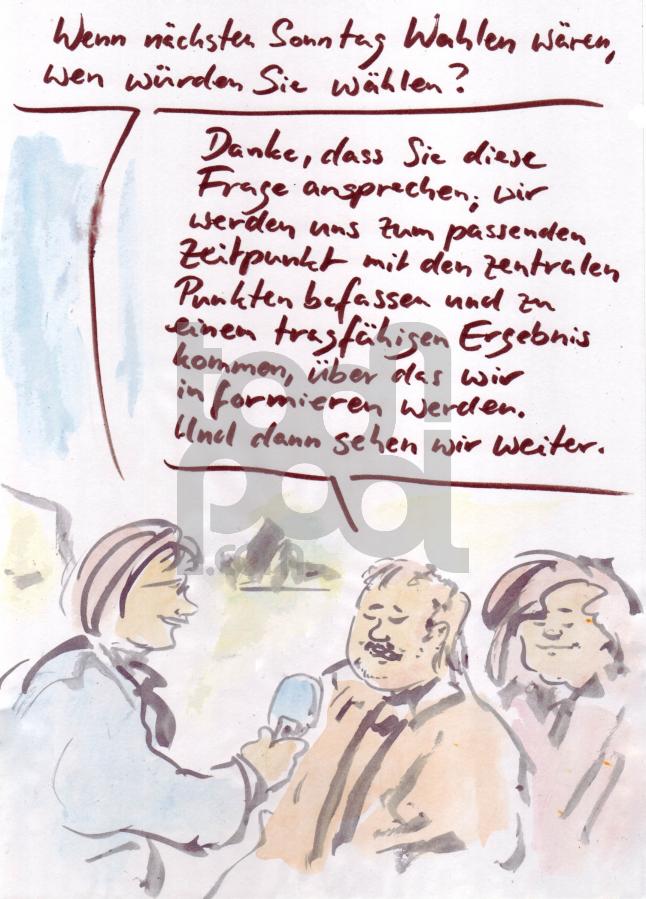 Wenn nächsten Sonntag Wahlen wären,
wen würden Sie wählen?
Danke, dass Sie diese
Frage ansprechen, wir
werden uns zum passenden
Zeitpunkt mit den zentralen
Punkten befassen und zu
einem tragfähigen Ergebnis
kommen, über das wir
informieren werden.
Und dann sehen wir weiter.
toon
pool
.com